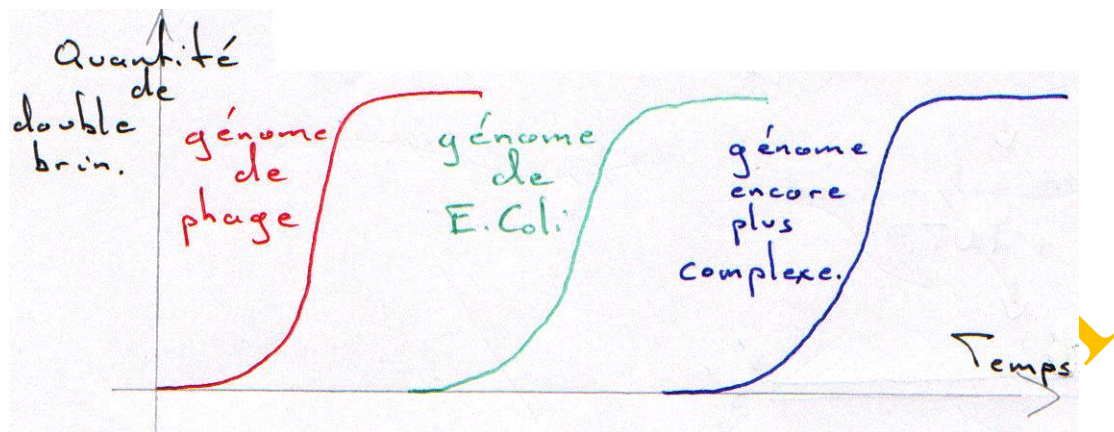 Quantité
de
double
brin.
génome
de
phage
génome
de
E.Coli
génome
encore
plus
complexe.
Temps